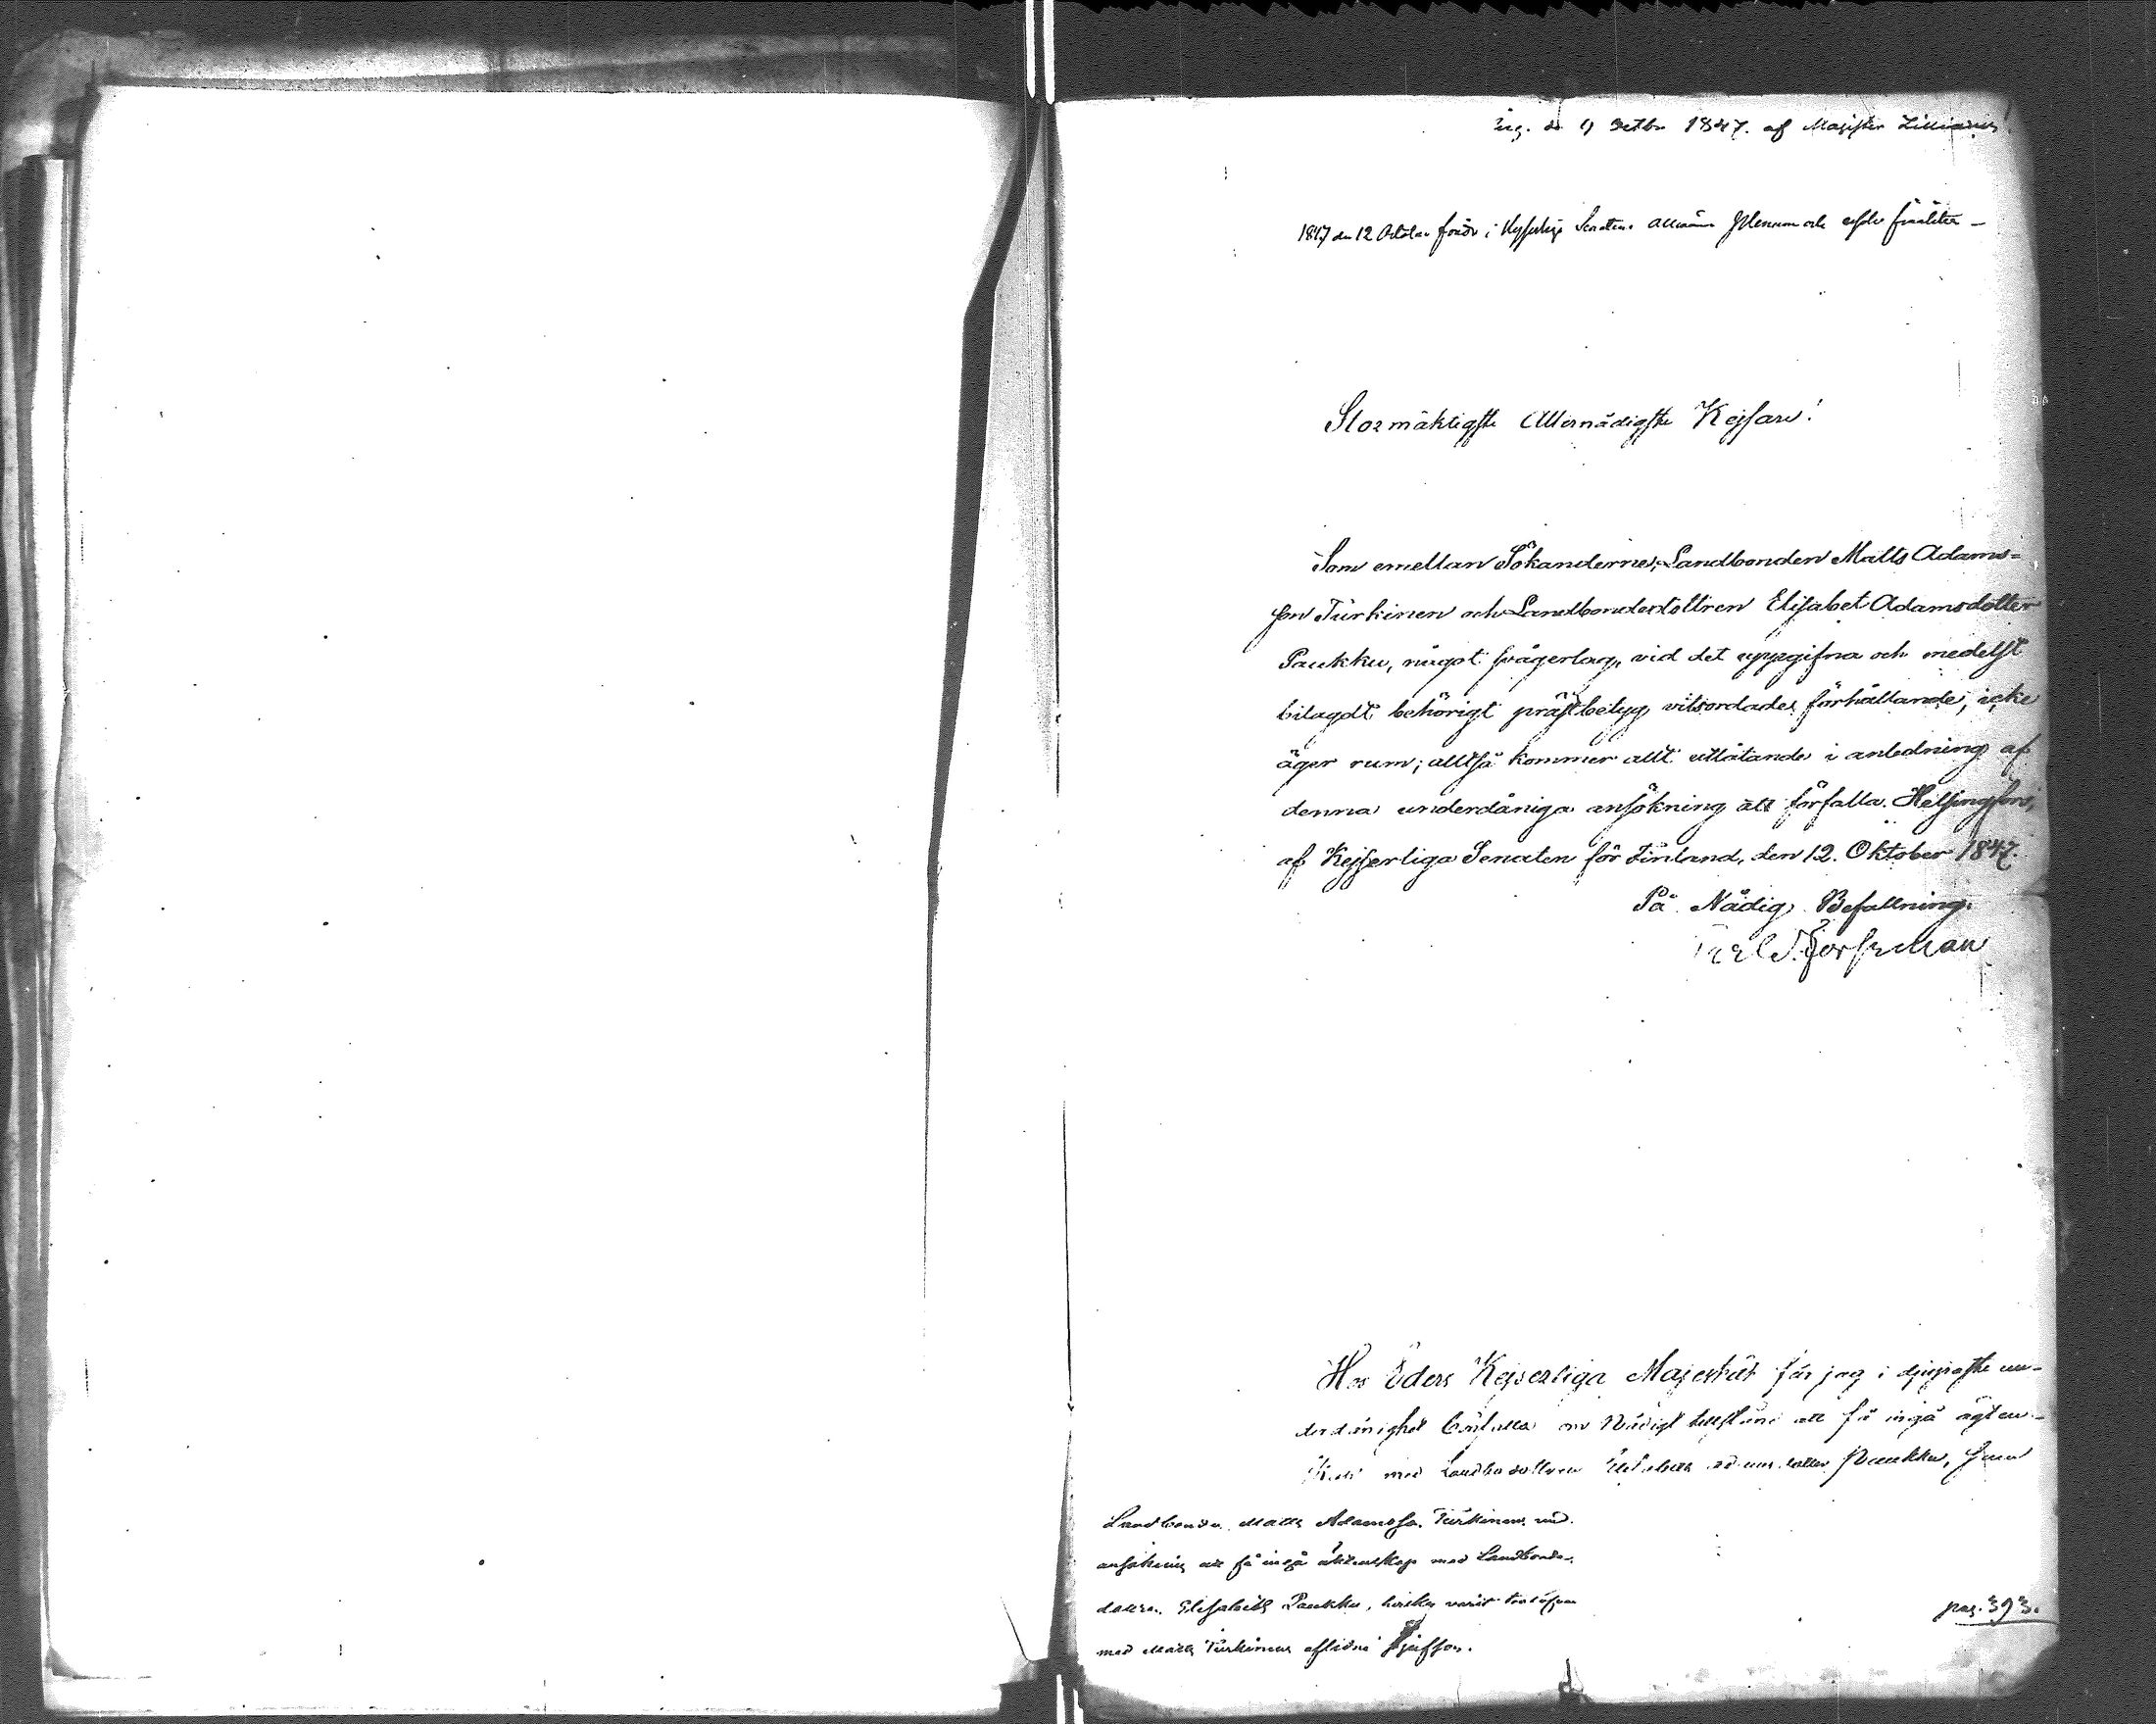 Ing. d. 9 Octbr 1847. af Magister Lilliadius
1847 den 12 October föredr. i Kejserliga Senatens Allmänna Plenum och
Stormäktigste Allernådigste Kejsare!
Som emellan Sökanderne, Landbonden Matts Adams-
son Turkinen och Landbondedottren Elisabet Adamsdotter
Paukku, något svågerlag, vid det uppgifna och medelst
bilagdt behörigt prästbetyg vitsordade förhållande, icke
äger rum; alltså kommer allt utlåtande i anledning af
denna underdåniga ansökning att förfalla. Helsingfors,
af Kejserliga Senaten för Finland, den 12. Oktober 1847.
På Nådig Befallning.
Hos Eders Kejserliga Majestät får jag i djupaste un-
derdånighet bönfalla om Nådigt tillstånd att få ingå ägten-
skap med Landbodottren Elisabeth Adamsdotter Paukku,
Landbonden Matts Adamsson Turkinens und.
ansökning att få ingå äktenskap med Landbonde-
dottren Elisabeth Paukku, hvilken varit trolofvad
med Matts Turkinens aflidne
pag. 393.